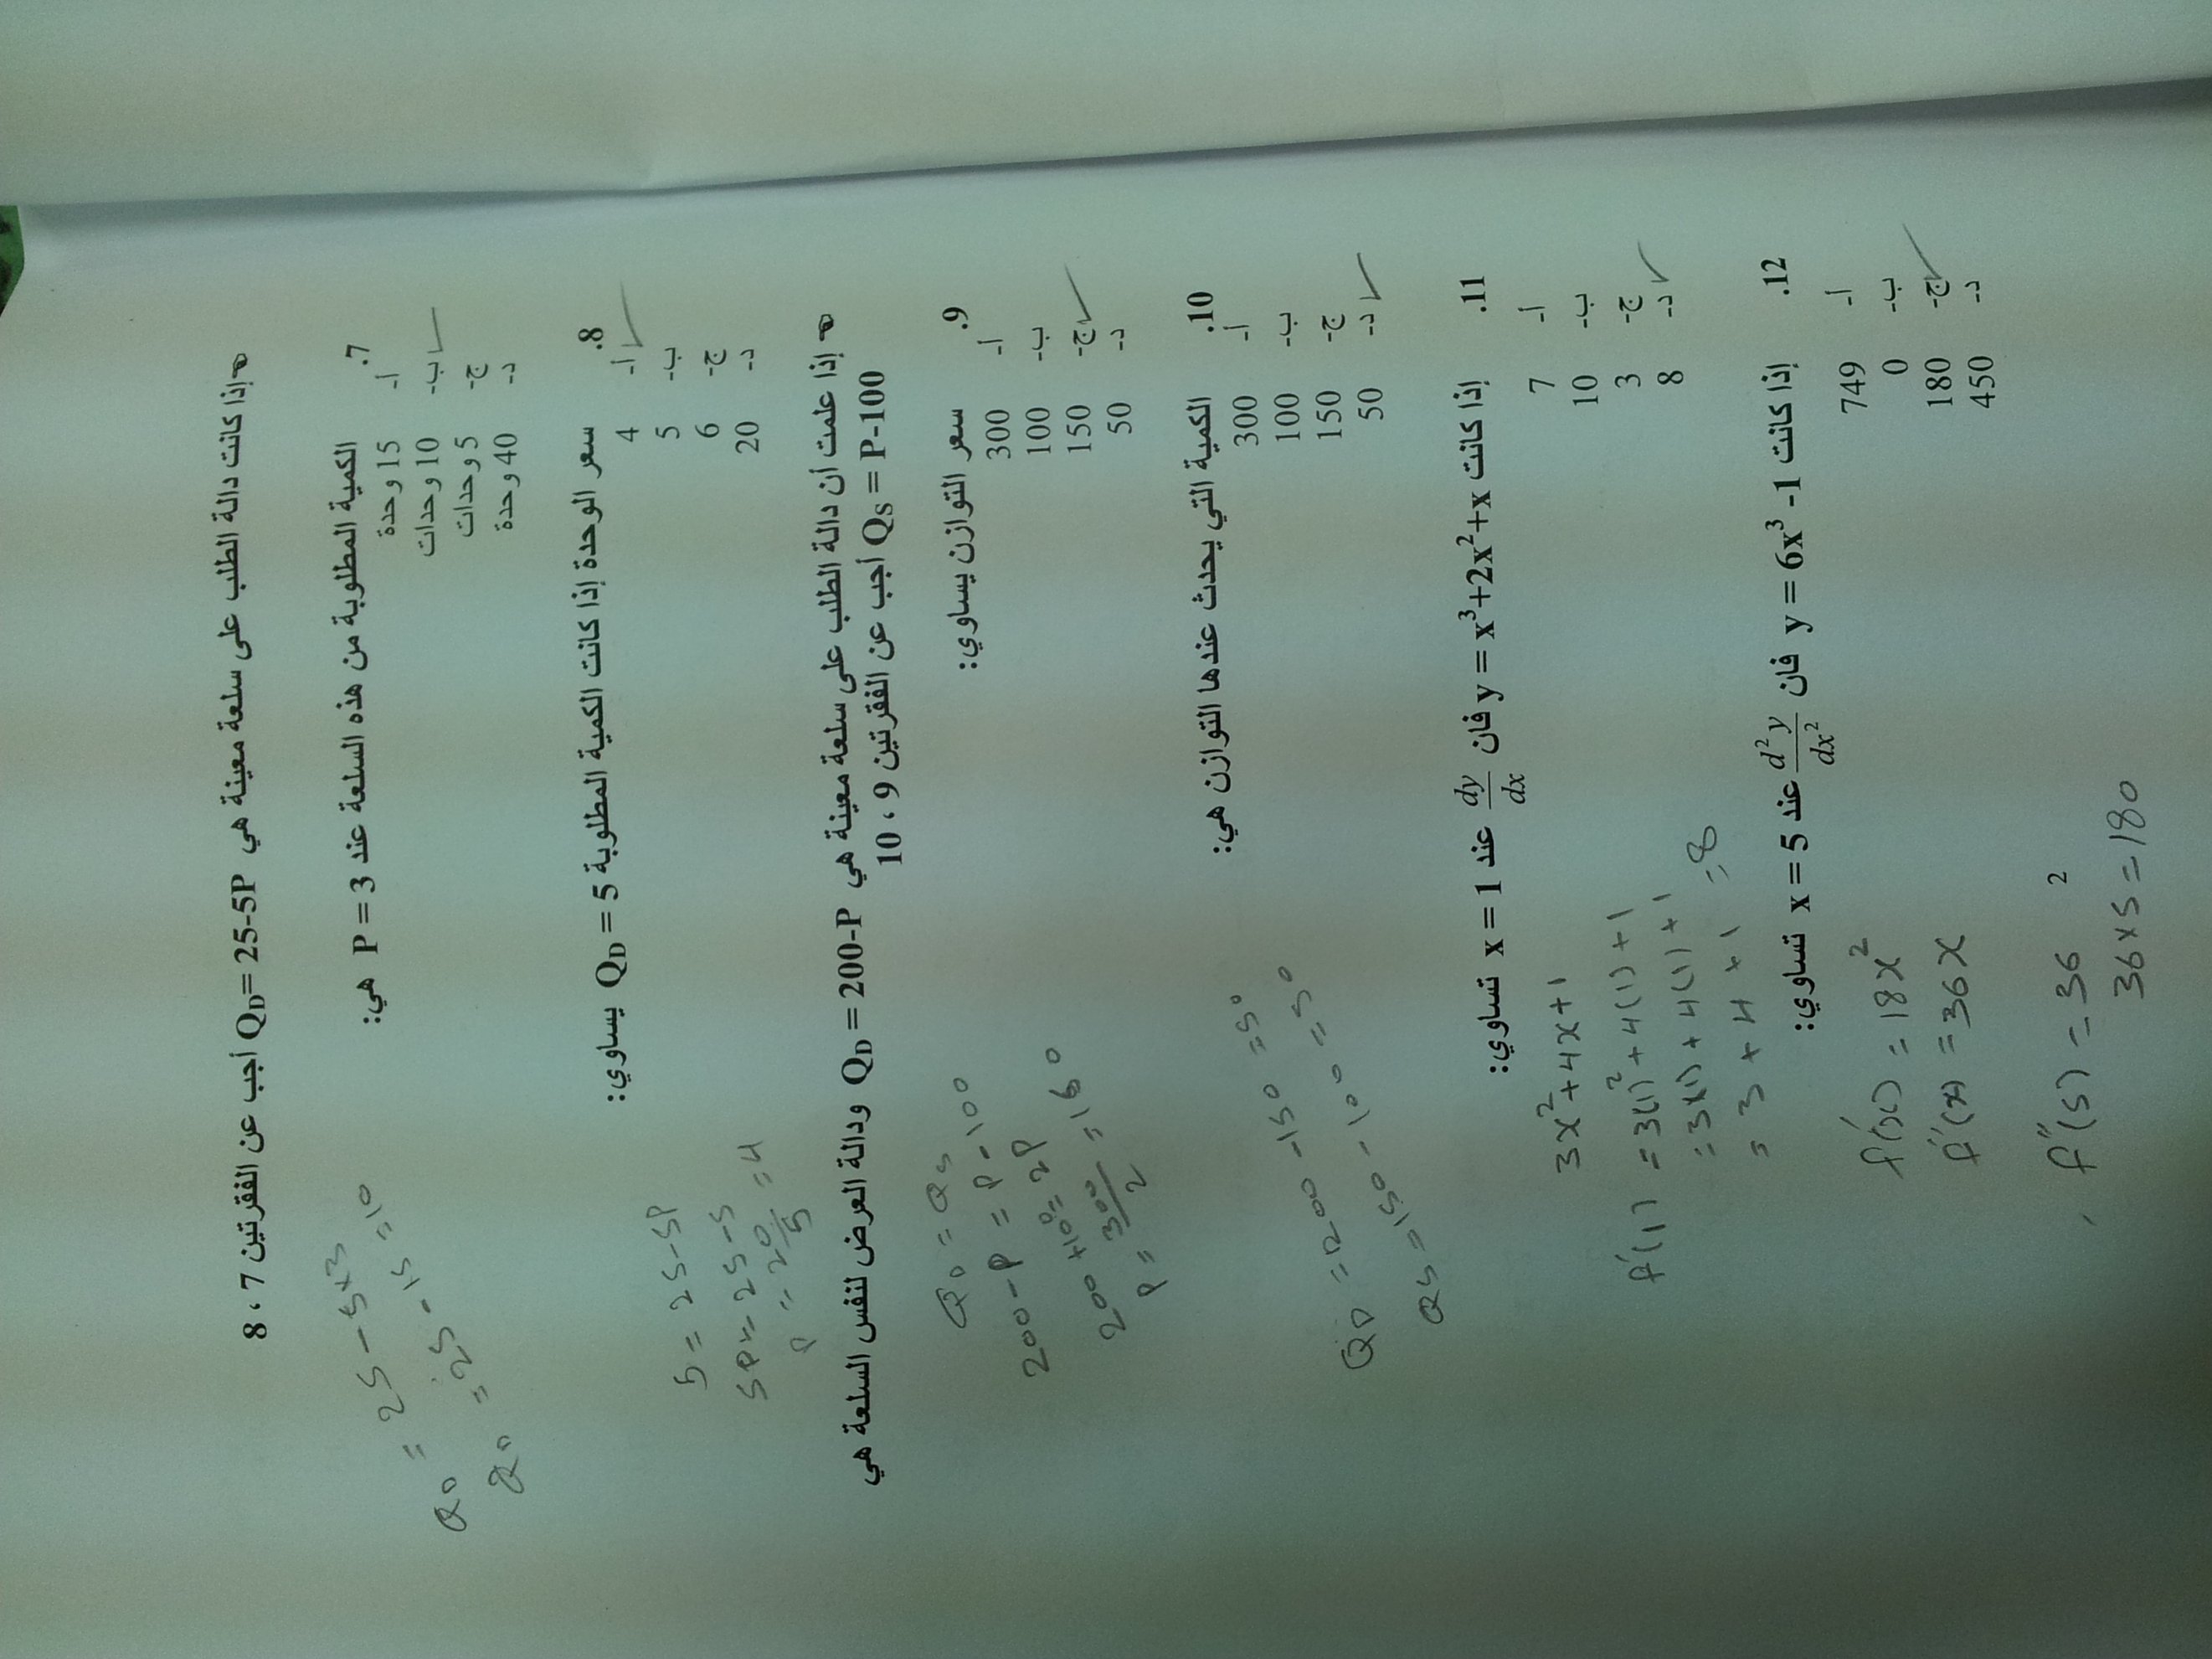 إذا كانت دالة الطلب على سلعة معينة هي QD= 25-5P أجب عن الفقرتين 7 ، 8
7. الكمية المطلوبة من هذه السلعة عند P = 3 هي:
أ- 15 وحدة
ب- 10 وحدات
ج- 5 وحدات
د- 40 وحدة
QD = 25 - 5×3
QD = 25 - 15 = 10
8. سعر الوحدة إذا كانت الكمية المطلوبة QD = 5 يساوي:
أ- 4
ب- 5
ج- 6
د- 20
5 = 25-5P
5P = 25-5
P = 20/5 = 4
إذا علمت أن دالة الطلب على سلعة معينة هي QD = 200-P ودالة العرض لنفس السلعة هي
QS = P-100 أجب عن الفقرتين 9 ، 10
9. سعر التوازن يساوي:
أ- 300
ب- 100
ج- 150
د- 50
QD = QS
200-P = P-100
200+100 = 2P
P = 300/2 = 160
10. الكمية التي يحدث عندها التوازن هي:
أ- 300
ب- 100
ج- 150
د- 50
QD = 200 - 150 = 50
QS = 150 - 100 = 50
11. إذا كانت y = x³+2x²+x فان dy/dx عند x = 1 تساوي:
أ- 7
ب- 10
ج- 3
د- 8
3x²+4x+1
f'(1) = 3(1)²+4(1)+1
= 3×(1)+4(1)+1
= 3+4+1 = 8
12. إذا كانت y = 6x³ -1 فان d²y/dx² عند x = 5 تساوي:
أ- 749
ب- 0
ج- 180
د- 450
f'(x) = 18x²
f''(x) = 36x
f''(5) = 36
36×5 = 180
2